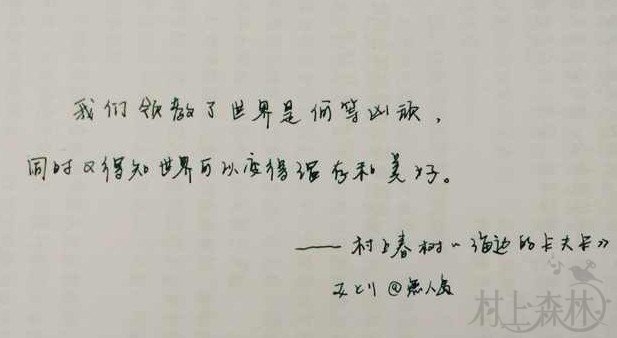 我们领教了世界是何等凶顽，
同时又得知世界可以变得温存和美好。
—— 村上春树《海边的卡夫卡》
@无人岛
村上森林